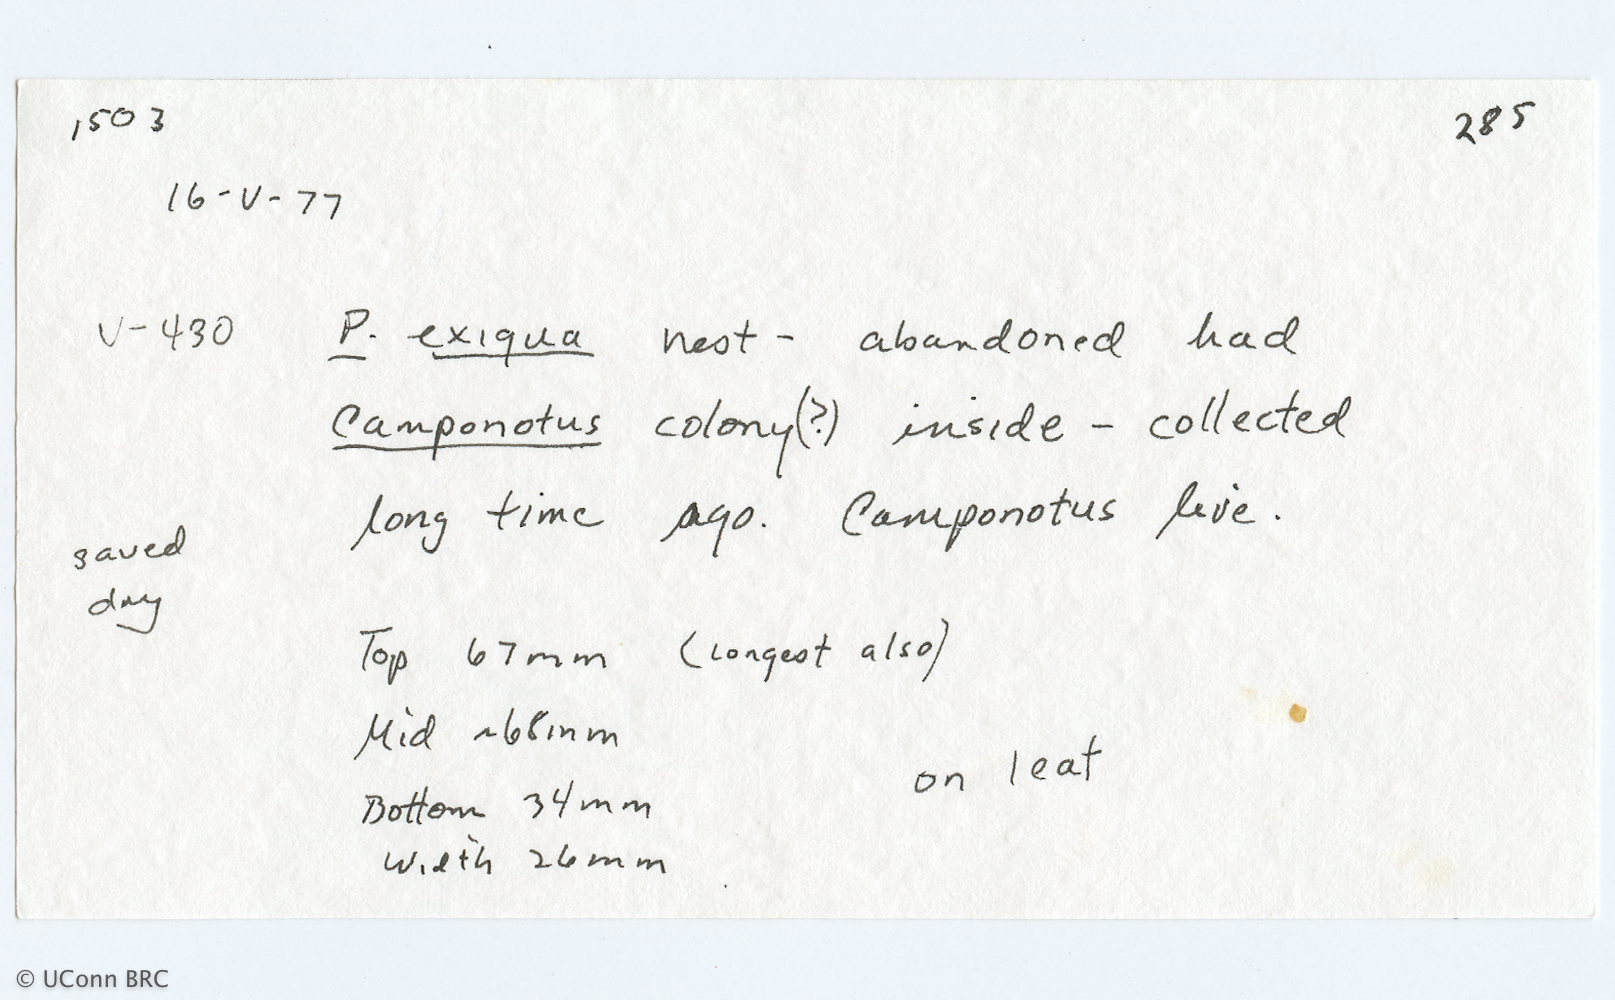 1503 285
16-V-77
V-430 P. exiqua nest - abandoned had
Camponotus colony(?) inside - collected
long time ago. Camponotus live.
saved
dry
Top 67mm (longest also)
Mid ~68mm
on leaf
Bottom 34mm
Width 26mm
© UConn BRC